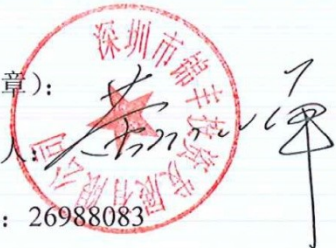 章）：
深圳市锦丰投资发展有限公司
人：
：26988083